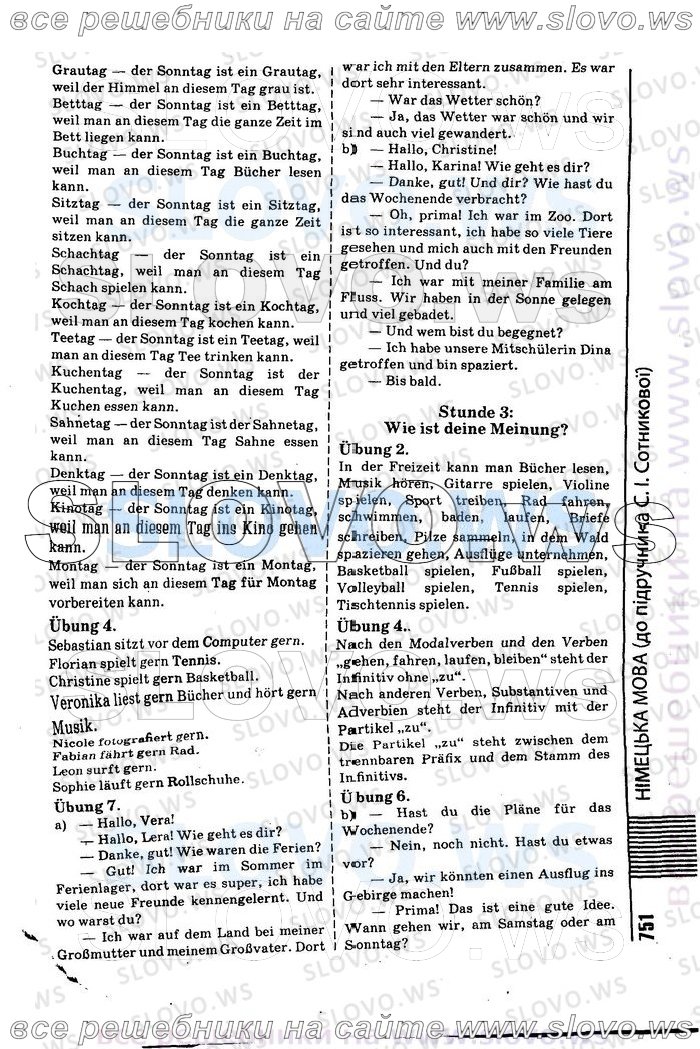 все решебники на сайте www.slovo.ws
Grautag — der Sonntag ist ein Grautag,
weil der Himmel an diesem Tag grau ist.
Betttag — der Sonntag ist ein Betttag,
weil man an diesem Tag die ganze Zeit im
Bett liegen kann.
Buchtag — der Sonntag ist ein Buchtag,
weil man an diesem Tag Bücher lesen
kann.
Sitztag — der Sonntag ist ein Sitztag,
weil man an diesem Tag die ganze Zeit
sitzen kann.
Schachtag — der Sonntag ist ein
Schachtag, weil man an diesem Tag
Schach spielen kann.
Kochtag — der Sonntag ist ein Kochtag,
weil man an diesem Tag kochen kann.
Teetag — der Sonntag ist ein Teetag, weil
man an diesem Tag Tee trinken kann.
Kuchentag — der Sonntag ist der
Kuchentag, weil man an diesem Tag
Kuchen essen kann.
Sahnetag — der Sonntag ist der Sahnetag,
weil man an diesem Tag Sahne essen
kann.
Denktag — der Sonntag ist ein Denktag,
weil man an diesem Tag denken kann.
Kinotag — der Sonntag ist ein Kinotag,
weil man an diesem Tag ins Kino gehen
kann.
Montag — der Sonntag ist ein Montag,
weil man sich an diesem Tag für Montag
vorbereiten kann.
Übung 4.
Sebastian sitzt vor dem Computer gern.
Florian spielt gern Tennis.
Christine spielt gern Basketball.
Veronika liest gern Bücher und hört gern
Musik.
Nicole fotografiert gern.
Fabian fährt gern Rad.
Leon surft gern.
Sophie läuft gern Rollschuhe.
Übung 7.
a) — Hallo, Vera!
— Hallo, Lera! Wie geht es dir?
— Danke, gut! Wie waren die Ferien?
— Gut! Ich war im Sommer im
Ferienlager, dort war es super, ich habe
viele neue Freunde kennengelernt. Und
wo warst du?
— Ich war auf dem Land bei meiner
Großmutter und meinem Großvater. Dort
war ich mit den Eltern zusammen. Es war
dort sehr interessant.
— War das Wetter schön?
— Ja, das Wetter war schön und wir
sind auch viel gewandert.
b) — Hallo, Christine!
— Hallo, Karina! Wie geht es dir?
— Danke, gut! Und dir? Wie hast du
das Wochenende verbracht?
— Oh, prima! Ich war im Zoo. Dort
ist so interessant, ich habe so viele Tiere
gesehen und mich auch mit den Freunden
getroffen. Und du?
— Ich war mit meiner Familie am
Fluss. Wir haben in der Sonne gelegen
und viel gebadet.
— Und wem bist du begegnet?
— Ich habe unsere Mitschülerin Dina
getroffen und bin spaziert.
— Bis bald.
Stunde 3:
Wie ist deine Meinung?
Übung 2.
In der Freizeit kann man Bücher lesen,
Musik hören, Gitarre spielen, Violine
spielen, Sport treiben, Rad fahren,
schwimmen, baden, laufen, Briefe
schreiben, Pilze sammeln, in dem Wald
spazieren gehen, Ausflüge unternehmen,
Basketball spielen, Fußball spielen,
Volleyball spielen, Tennis spielen,
Tischtennis spielen.
Übung 4..
Nach den Modalverben und den Verben
„gehen, fahren, laufen, bleiben“ steht der
Infinitiv ohne „zu“.
Nach anderen Verben, Substantiven und
Adverbien steht der Infinitiv mit der
Partikel „zu“.
Die Partikel „zu“ steht zwischen dem
trennbaren Präfix und dem Stamm des
Infinitivs.
Übung 6.
b) — Hast du die Pläne für das
Wochenende?
— Nein, noch nicht. Hast du etwas
vor?
— Ja, wir könnten einen Ausflug ins
Gebirge machen!
— Prima! Das ist eine gute Idee.
Wann gehen wir, am Samstag oder am
Sonntag?
НІМЕЦЬКА МОВА (до підручника С. І. Сотникової)
751
все решебники на сайте www.slovo.ws